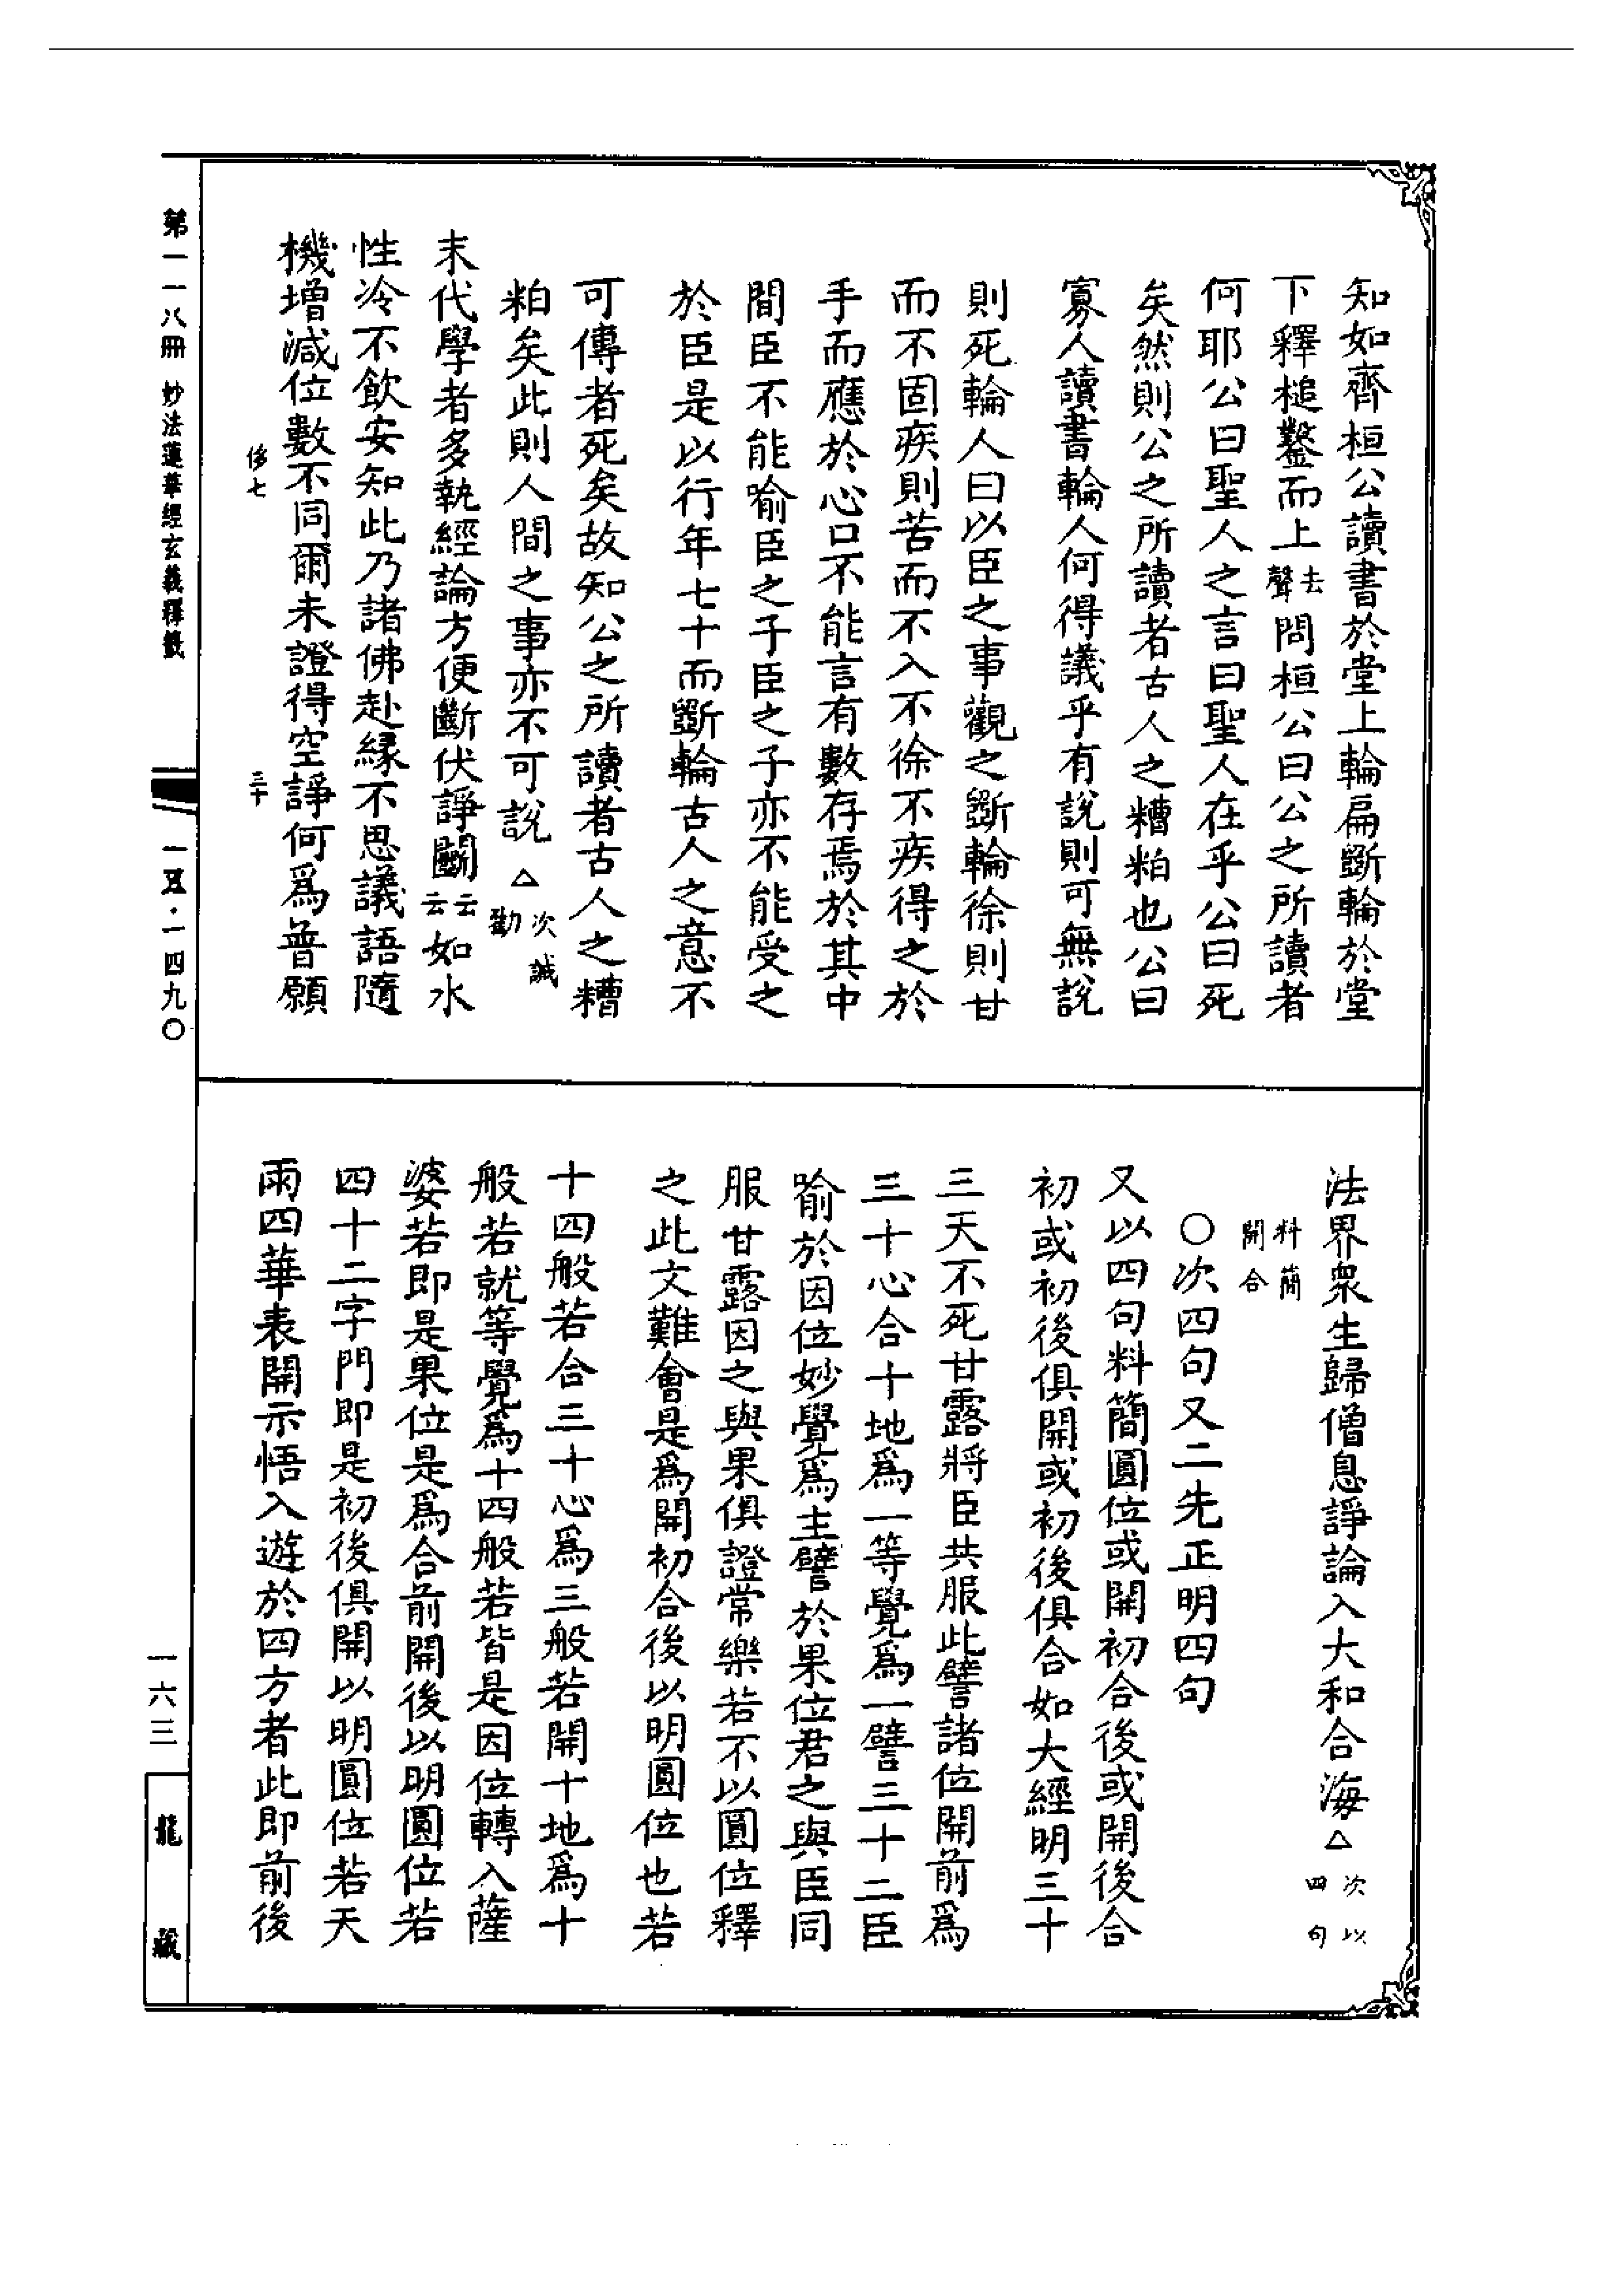 知如齊桓公讀書於堂上輪扁斲輪於堂
下釋槌鑿而上去聲問桓公曰公之所讀者
何耶公曰聖人之言曰聖人在乎公曰死
矣然則公之所讀者古人之糟粕也公曰
寡人讀書輪人何得議乎有說則可無說
則死輪人曰以臣之事觀之斲輪徐則甘
而不固疾則苦而不入不徐不疾得之於
手而應於心口不能言有數存焉於其中
間臣不能喻臣之子臣之子亦不能受之
於臣是以行年七十而斲輪古人之意不
可傳者死矣故知公之所讀者古人之糟
粕矣此則人間之事亦不可說△次誡勸
末代學者多執經論方便斷伏諍鬬云云如水
性冷不飲安知此乃諸佛赴緣不思議語隨
機增減位數不同爾未證得空諍何為普願
侈七 三十
第一一八冊 妙法蓮華經玄義釋籤 一五·一四九〇
法界眾生歸僧息諍論入大和合海△次以四句
料簡開合
〇次四句又二先正明四句
又以四句料簡圓位或開初合後或開後合
初或初後俱開或初後俱合如大經明三十
三天不死甘露將臣共服此譬諸位開前為
三十心合十地為一等覺為一譬三十二臣
喻於因位妙覺為主譬於果位君之與臣同
服甘露因之與果俱證常樂若不以圓位釋
之此文難會是為開初合後以明圓位也若
十四般若合三十心為三般若開十地為十
般若就等覺為十四般若皆是因位轉入薩
婆若即是果位是為合前開後以明圓位若
四十二字門即是初後俱開以明圓位若天
雨四華表開示悟入遊於四方者此即前後
一六三
龍藏